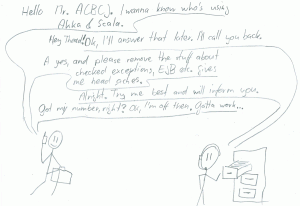 Hello Mr. ACBCJ. I wanna know who's using
Akka & Scala.
Hey Thread! Ok, I'll answer that later. I'll call you back.
A yes, and please remove the stuff about
checked exceptions, EJB etc. gives
me head aches.
Alright. Try me best and will inform you.
Got my number, right? Ok, I'm off then. Gotta work...